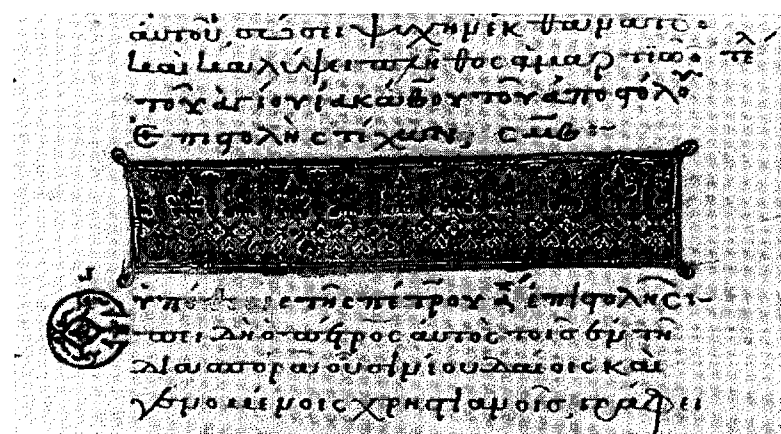 αὐτοῦ σώσει ψυχὴν ἐκ θανάτου·
καὶ καλύψει πλῆθος ἁμαρτιῶν· τελ
τοῦ ἁγίου ἰακώβου τοῦ ἀποστόλου
ἐπιστολῆς στίχων, σμβ:-
ὑπόθεσις τῆς πέτρου α ἐπιστολῆς:-
Ἐπειδὴ ὁ πέτρος αὐτὸς τοῖς ἐν τῆ
διασπορᾶ οὖσιν ἰουδαίοις καὶ
γενομένοις χριστιανοῖς, γράφει